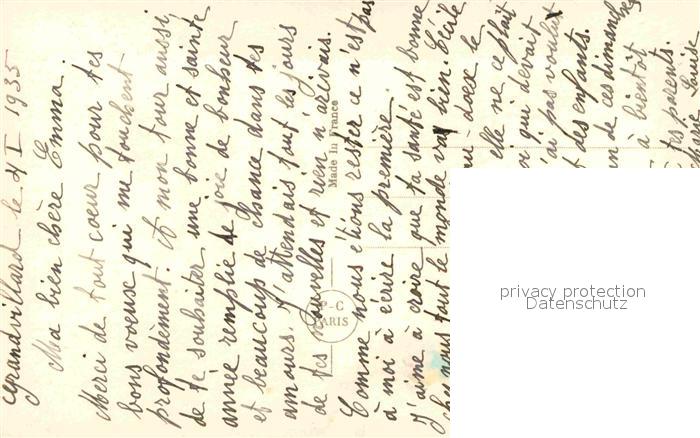 Grandvillard le 4 I 1935
Ma bien chère Emma.
Merci de tout coeur pour tes
bons voeuse qui me touchent
profondèment. A mon tour aussi,
de te souhaiter une bonne et sainte
année remplie de joie de bonheur
et beaucoup de chance dans tes
amours. J'attendais tout les jours
de tes nouvelles et rien n'arivais.
Comme nous étions rester ce n'est pas
à moi à écrire la première.
J'aime à croire que ta santé est bonne
chez nous tout le monde va bien. Cécile
le
elle ne ce plait
qui devait
pas voulut
des enfants.
un de ces dimanches
à bientôt
tes parents.
Made in France
P-C
PARIS
privacy protection
Datenschutz